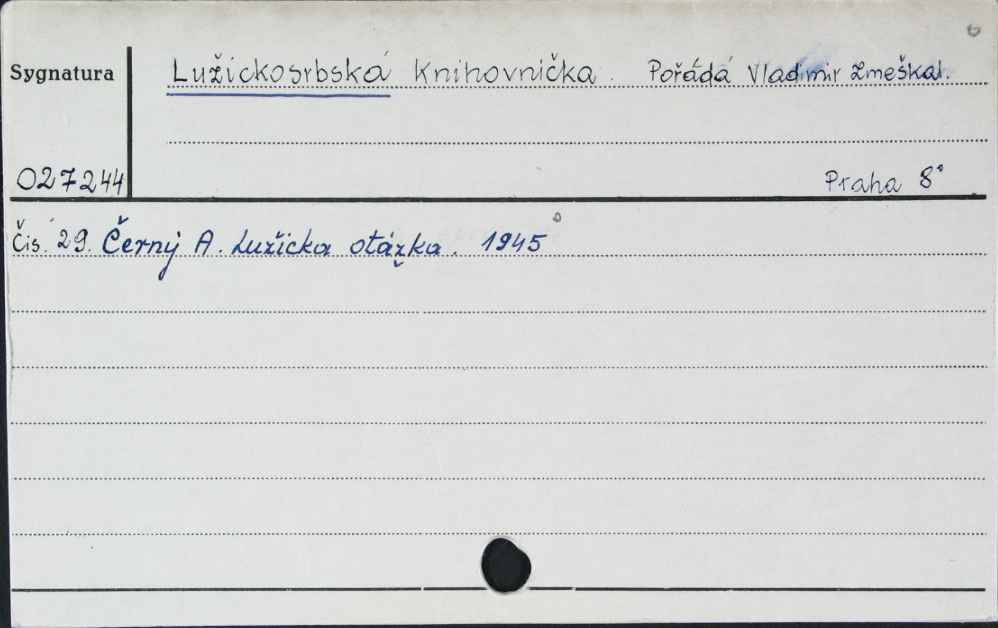 Sygnatura
Lužickosrbská Knihovnička. Pořádá Vladimir Zmeškal.
027244
Praha 8°
Čis. 29. Černý A. Lužicka otázka. 1945